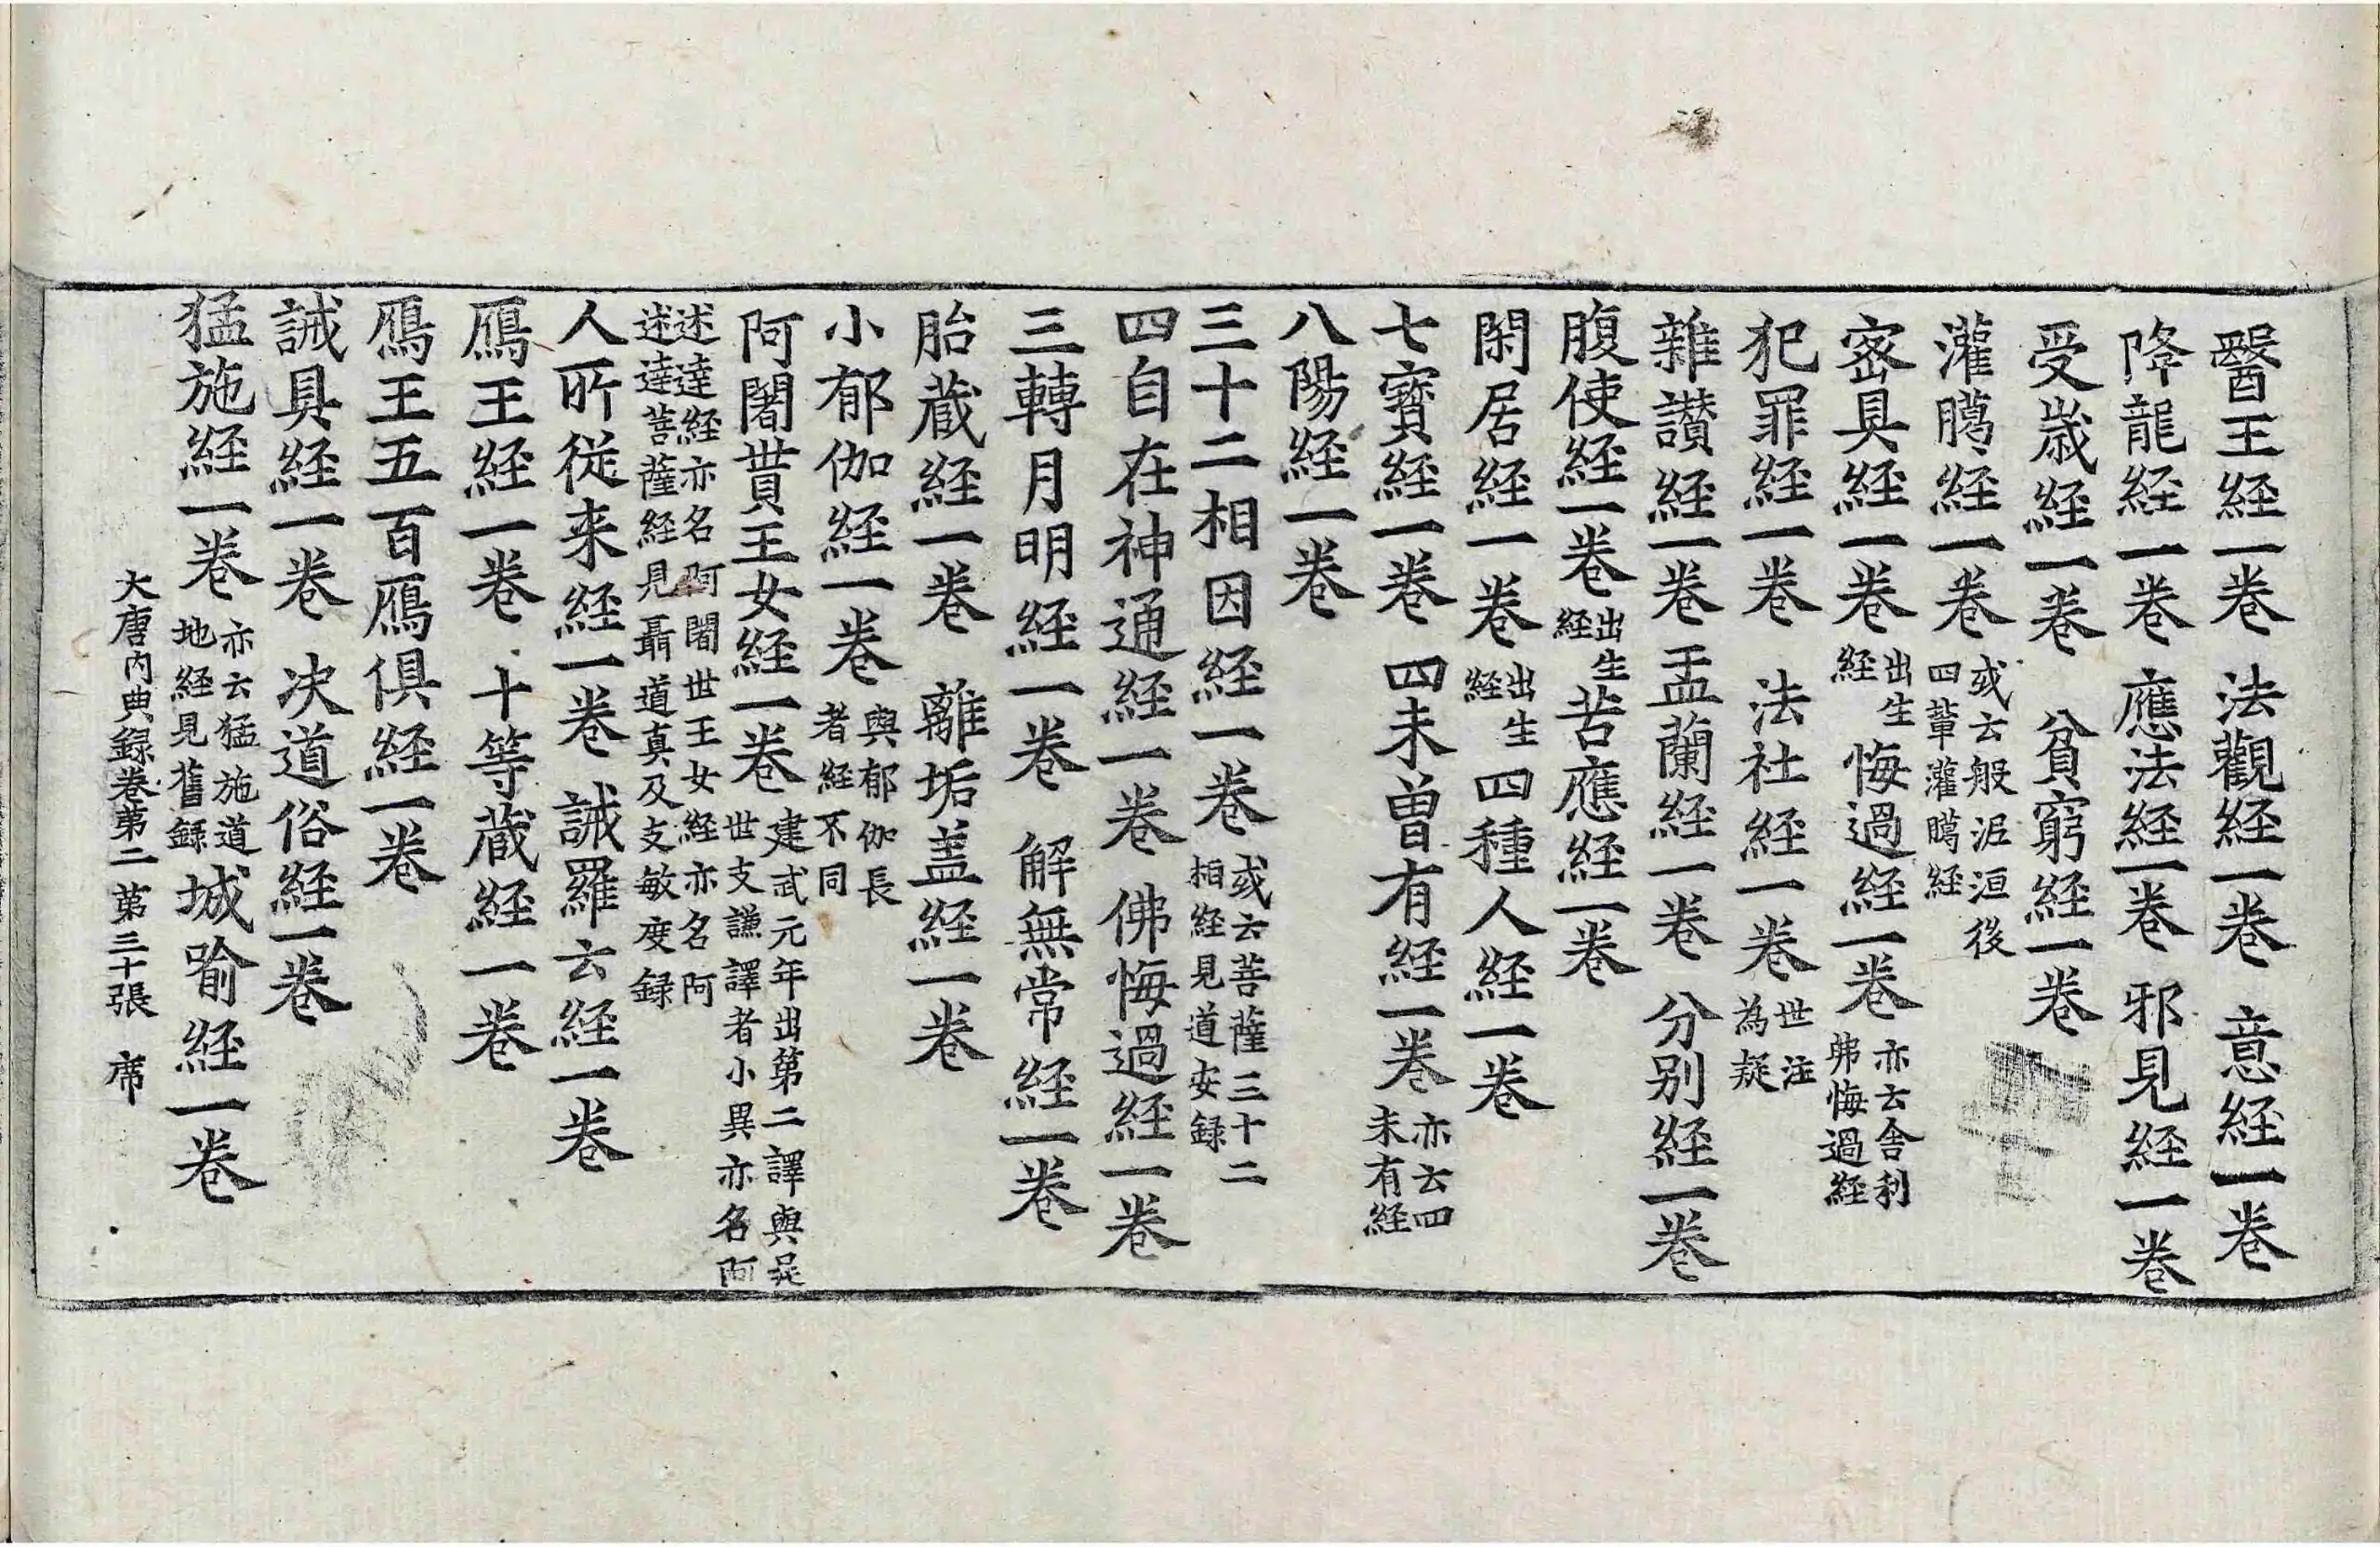 醫王経一卷 法觀経一卷 意経一卷
降龍経一卷 應法経一卷 邪見経一卷
受歳経一卷 貧窮経一卷
灌臈経一卷 或云般泥洹後四輩灌臈経
宻具経一卷 出生経 悔過経一卷 亦云舎利弗悔過経
犯罪経一卷 法社経一卷 世注為疑
雜讃経一卷 盂蘭経一卷 分别経一卷
腹使経一卷 出生経 苦應経一卷
閑居経一卷 出生経 四種人経一卷
七寳経一卷 四未曽有経一卷 亦云四未有経
八陽経一卷
三十二相因経一卷 或云菩薩三十二相経見道安録
四自在神通経一卷 佛悔過経一卷
三轉月明経一卷 解無常経一卷
胎蔵経一卷 離垢盖経一卷
小郁伽経一卷 與郁伽長者経不同
阿闍貰王女経一卷 建武元年出第二譯與吴世支謙譯者小異亦名阿
述達経亦名阿闍世王女経亦名阿述達菩薩経見聶道真及支敏度録
人所従来経一卷 誡羅云経一卷
鴈王経一卷 十等蔵経一卷
鴈王五百鴈俱経一卷
誡具経一卷 决道俗経一卷
猛施経一卷 亦云猛施道地経見舊録 城喻経一卷
大唐内典録卷苐二 苐三十張 席